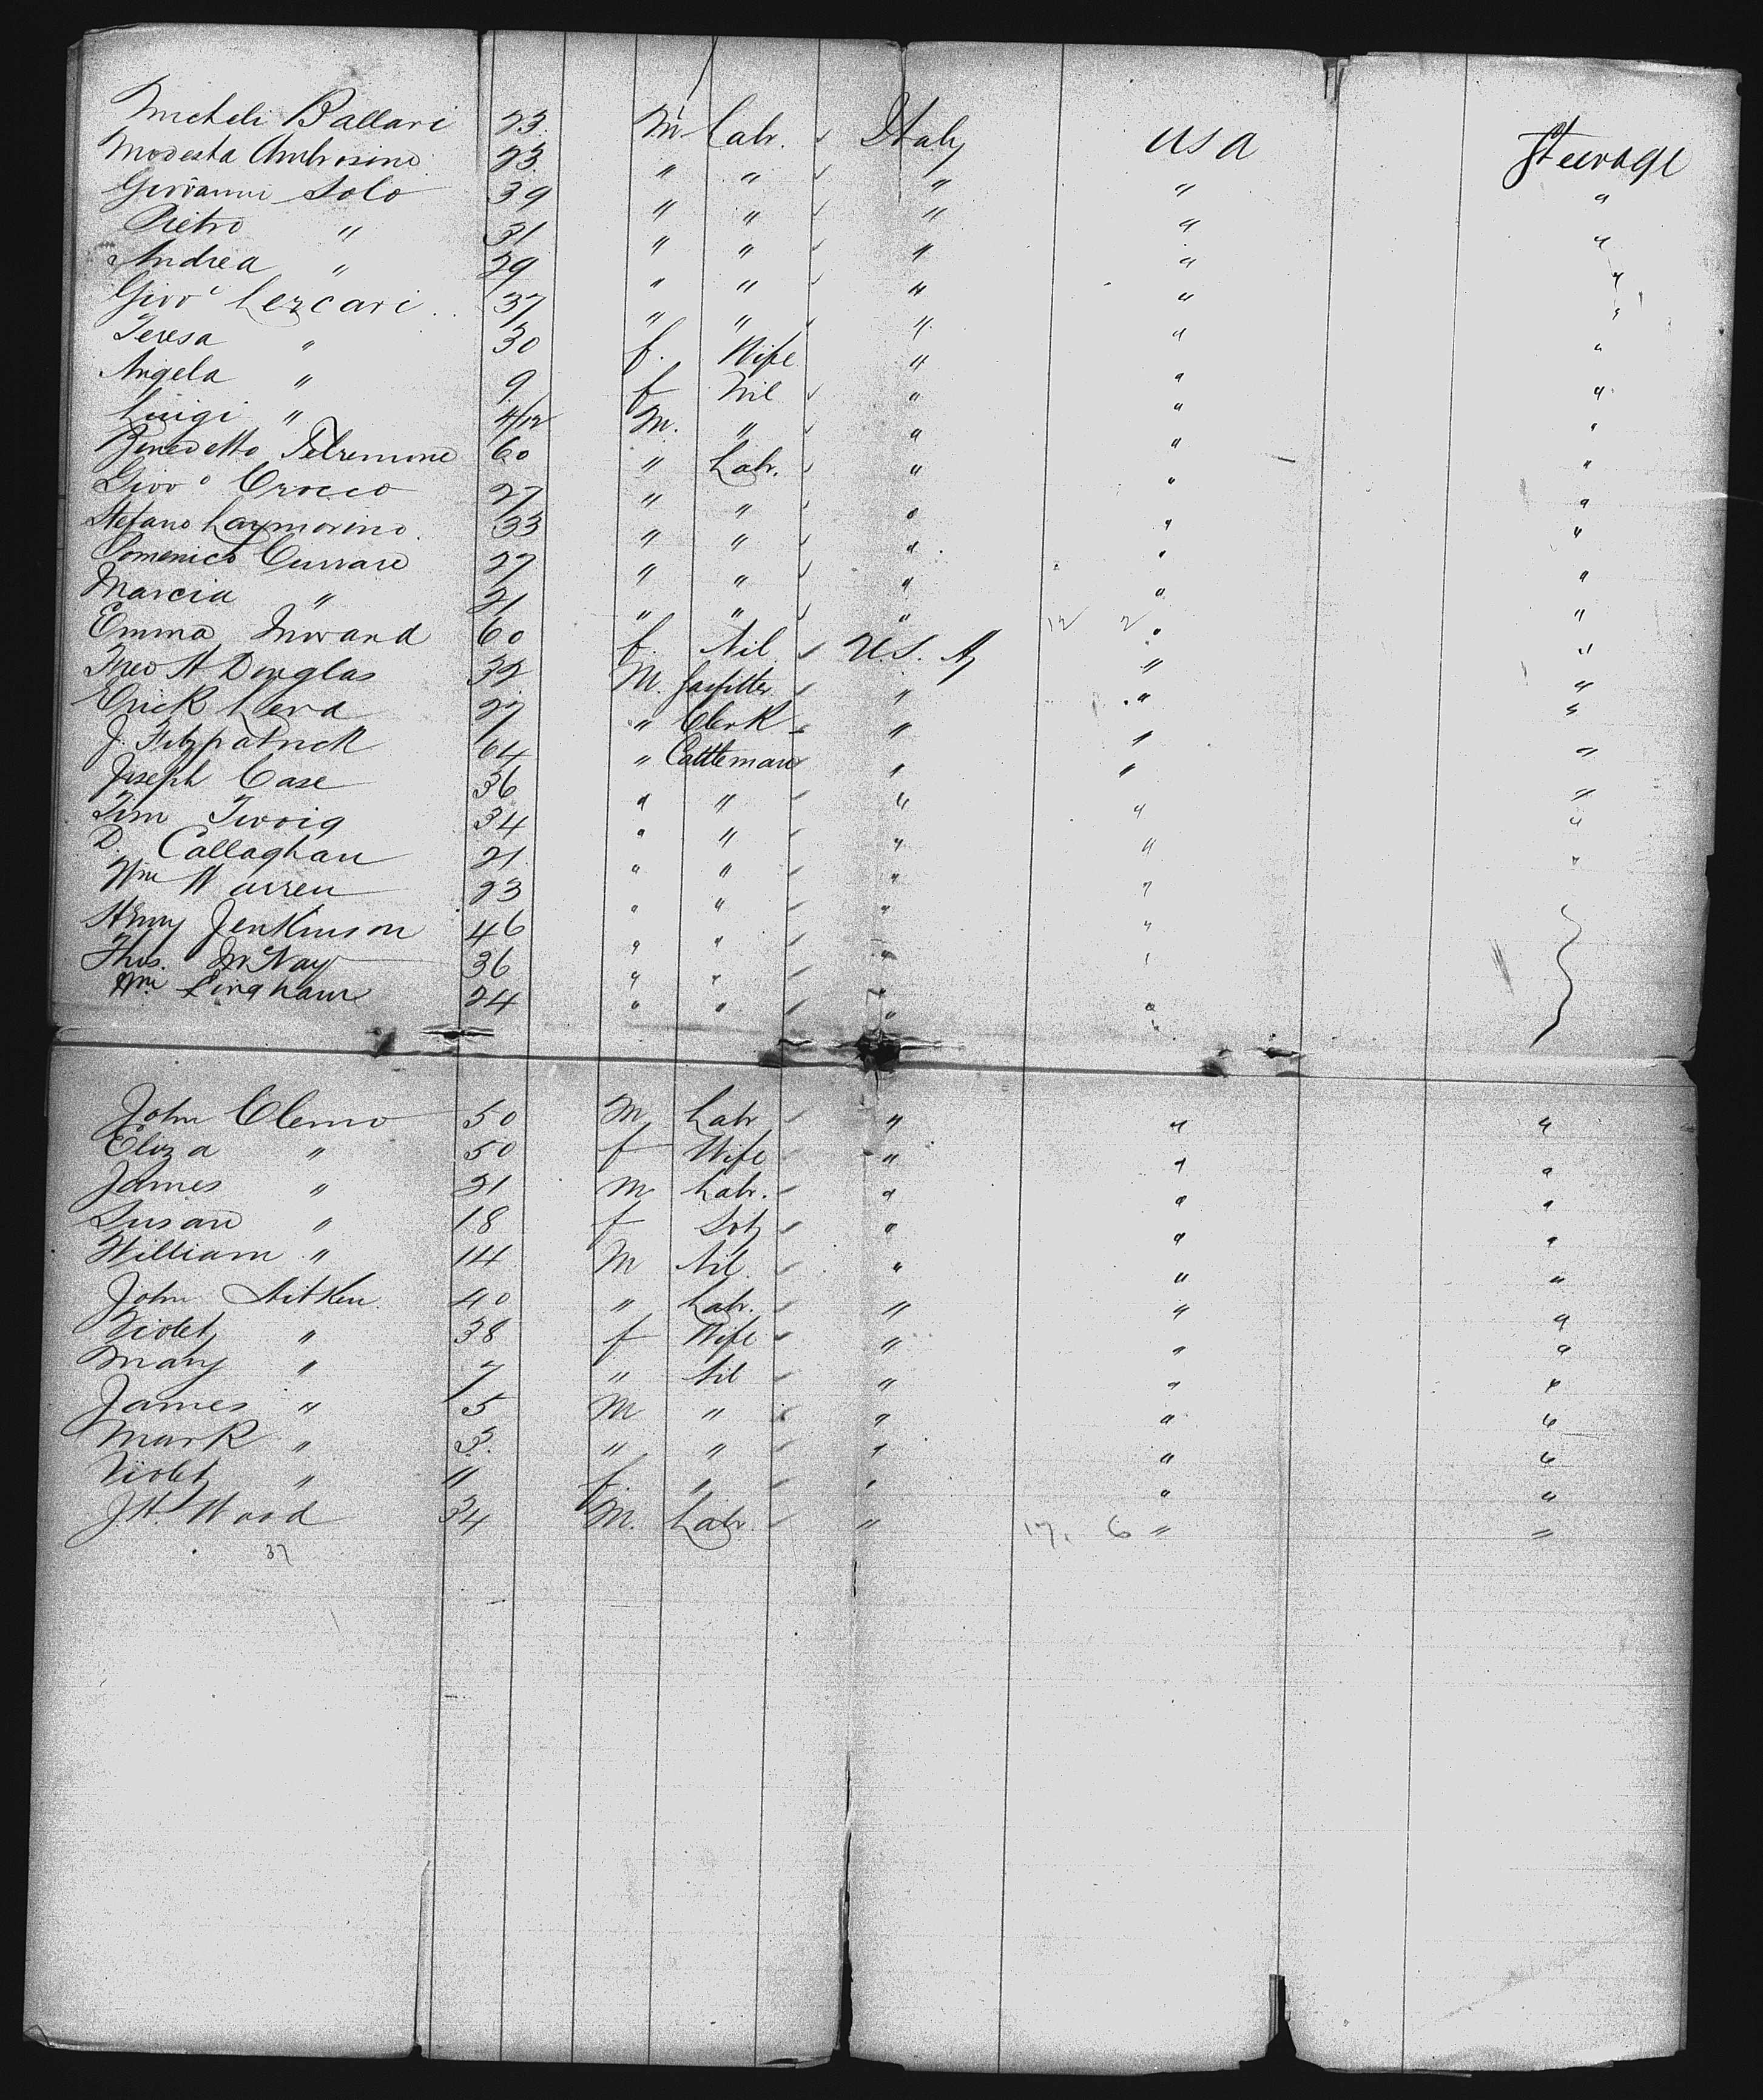 Micheli Ballari 23. M Labr. Italy USA Steerage
Modesta Ambrosino 23. " " " " "
Giovanni Solo 39 " " " " "
Pietro " 31 " " " " "
Andrea " 29 " " " " "
Giovi Lercari 37 " " " " "
Teresa " 30 f. Wife " " "
Angela " 9 f Nil " " "
Luigi " 4/12 M. " " " "
Benedetto 60 " Labr. " " "
Giovo Crocco 27 " " " " "
Stefano 33 " " " " "
Domenico 27 " " " " "
Marcia " 21 " " " " "
Emma Inward 60 f. Nil U.S. A 12 2 " "
Theo H Douglas 32 M. Gasfitter " " "
Erick 27 " Clerk " " "
J. Fitzpatrick 64 " Cattleman " " "
Joseph Case 36 " " " " "
Tim Twoig 34 " " " " "
D. Callaghan 21 " " " " "
Wm Warren 23 " " " "
Henry Jenkinson 46 " " " "
Thos. McNay 36 " " " "
Wm Lingham 24 " " " "
John Clemo 50 M Labr " " "
Eliza " 50 f Wife " " "
James " 21 M Labr. " " "
Susan " 18 f " " "
William " 14 M Nil " " "
John Aitken 40 " Labr. " " "
Violet " 38 f Wife " " "
Mary " 7 " Nil " " "
James " 5 M " " " "
Mark " 3. " " " " "
Violet " 11 f " " " "
J.H. Wood 34 M. Labr " 17. 6 " "
37